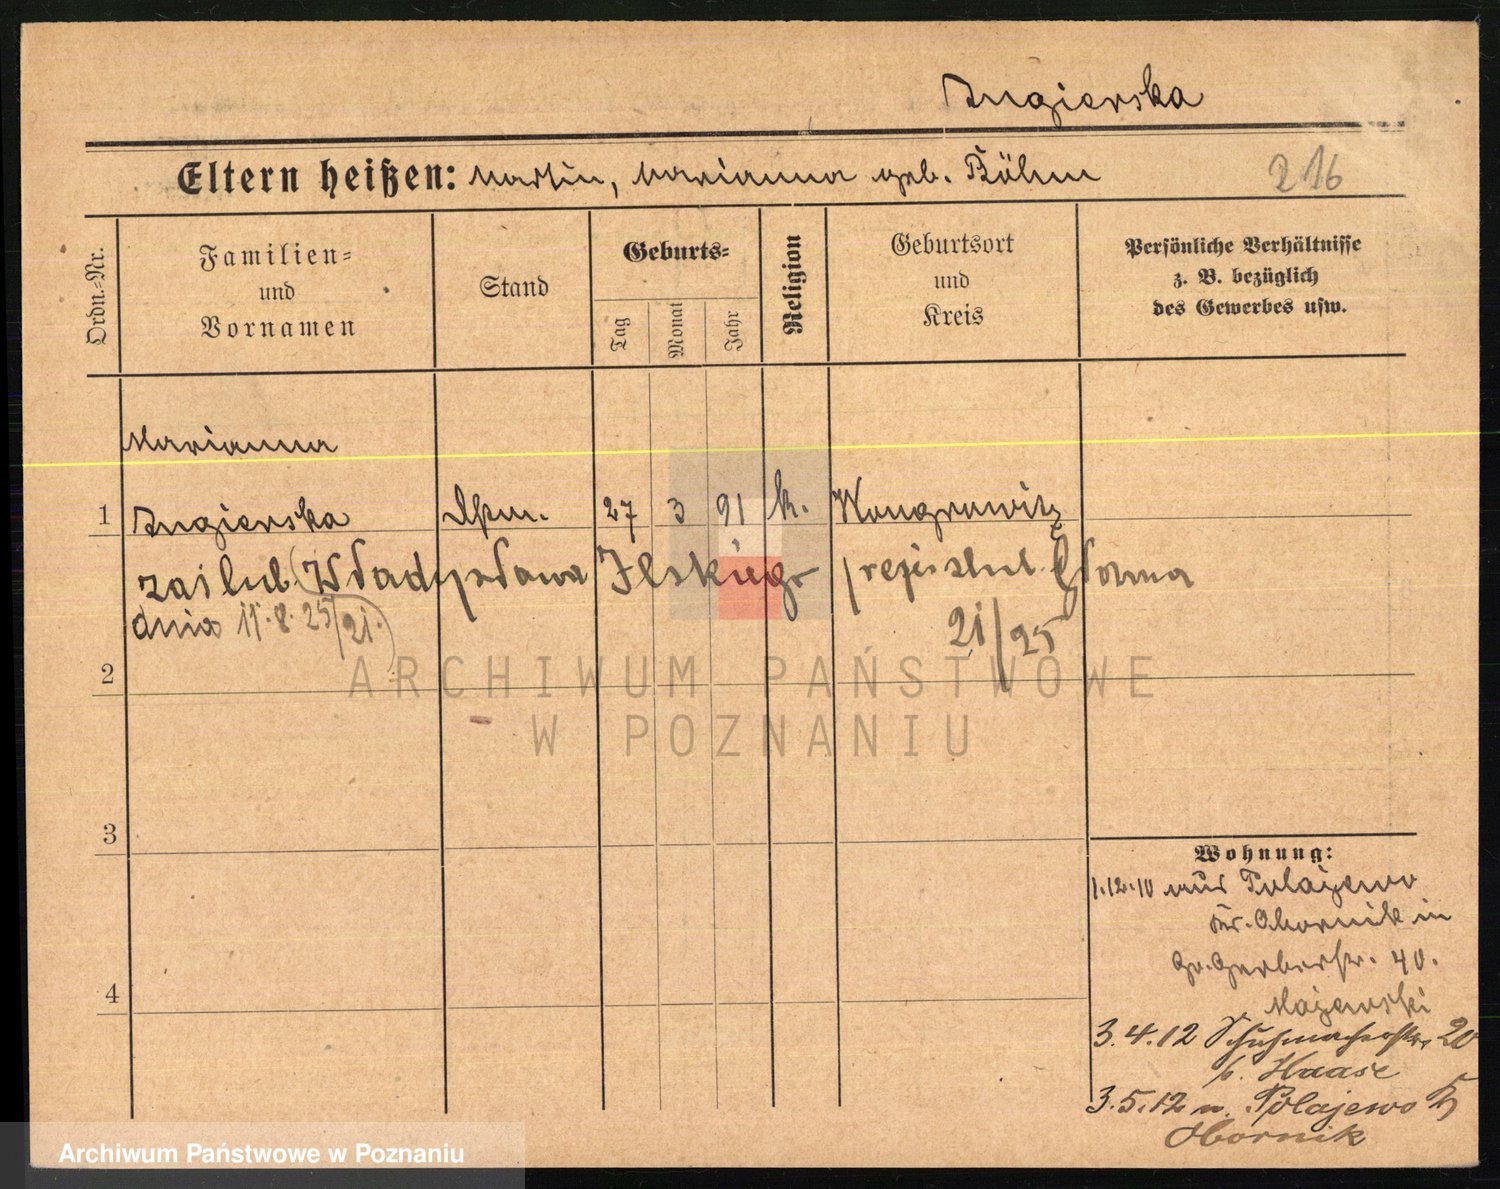 Zugierska
Eltern heißen: Martin, Marianna geb. Böhm
216
Ordn.-Nr.
Familien=
und
Vornamen
Stand
Geburts=
Tag
Monat
Jahr
Religion
Geburtsort
und
Kreis
Persönliche Verhältnisse
z. B. bezüglich
des Gewerbes usw.
Marianna
1 Zugierska 27 3 91 k. Wongrowitz
zaślub. (Władysława Ilskiego
dnia 11.8.25/21.)
21/25
2
3
4
Wohnung:
1.12.10 aus Polajewo
Kr. Obornik in
Gr. Gerberstr. 40.
Majewski
3.4.12 Schuhmacherstr. 20
b. Haase
3.5.12 n. Polajewo K
Obornik
ARCHIWUM PAŃSTWOWE
W POZNANIU
Archiwum Państwowe w Poznaniu